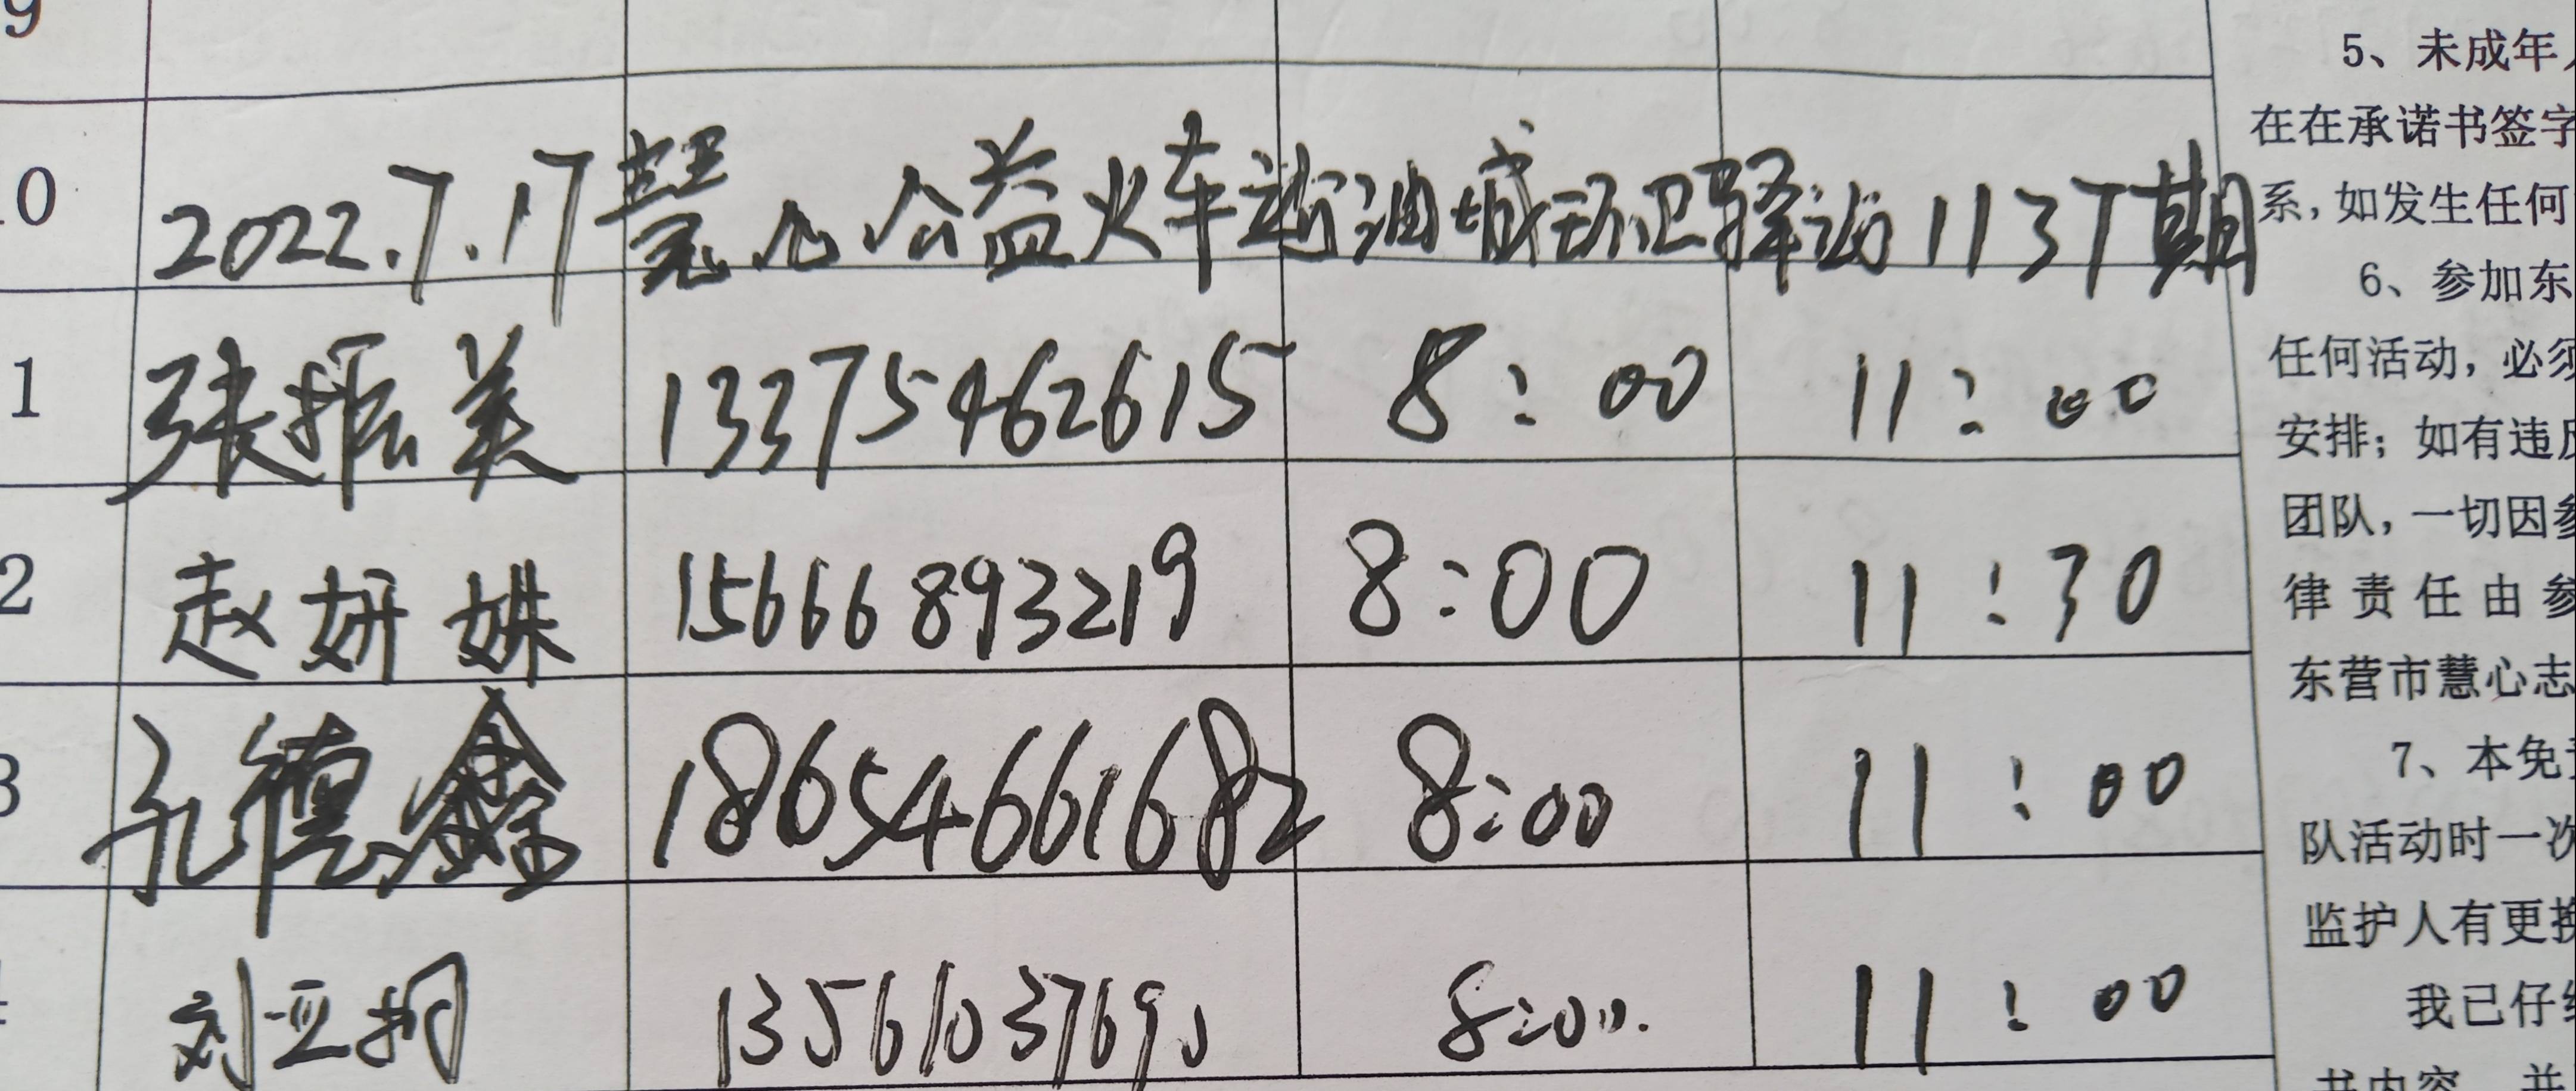 9
10 2022.7.17慧心公益火车站油城环卫驿站1137期
1 张振美 13375462615 8:00 11:00
2 赵妍姝 15666893219 8:00 11:30
3 孔德鑫 18654661682 8:00 11:00
刘亚 8:00. 11:00
5、未成年
在在承诺书签字
系,如发生任何
6、参加东
任何活动,必须
安排;如有违反
团队,一切因参
律责任由参
东营市慧心志
7、本免
队活动时一次
监护人有更换
我已仔细
书内容,并